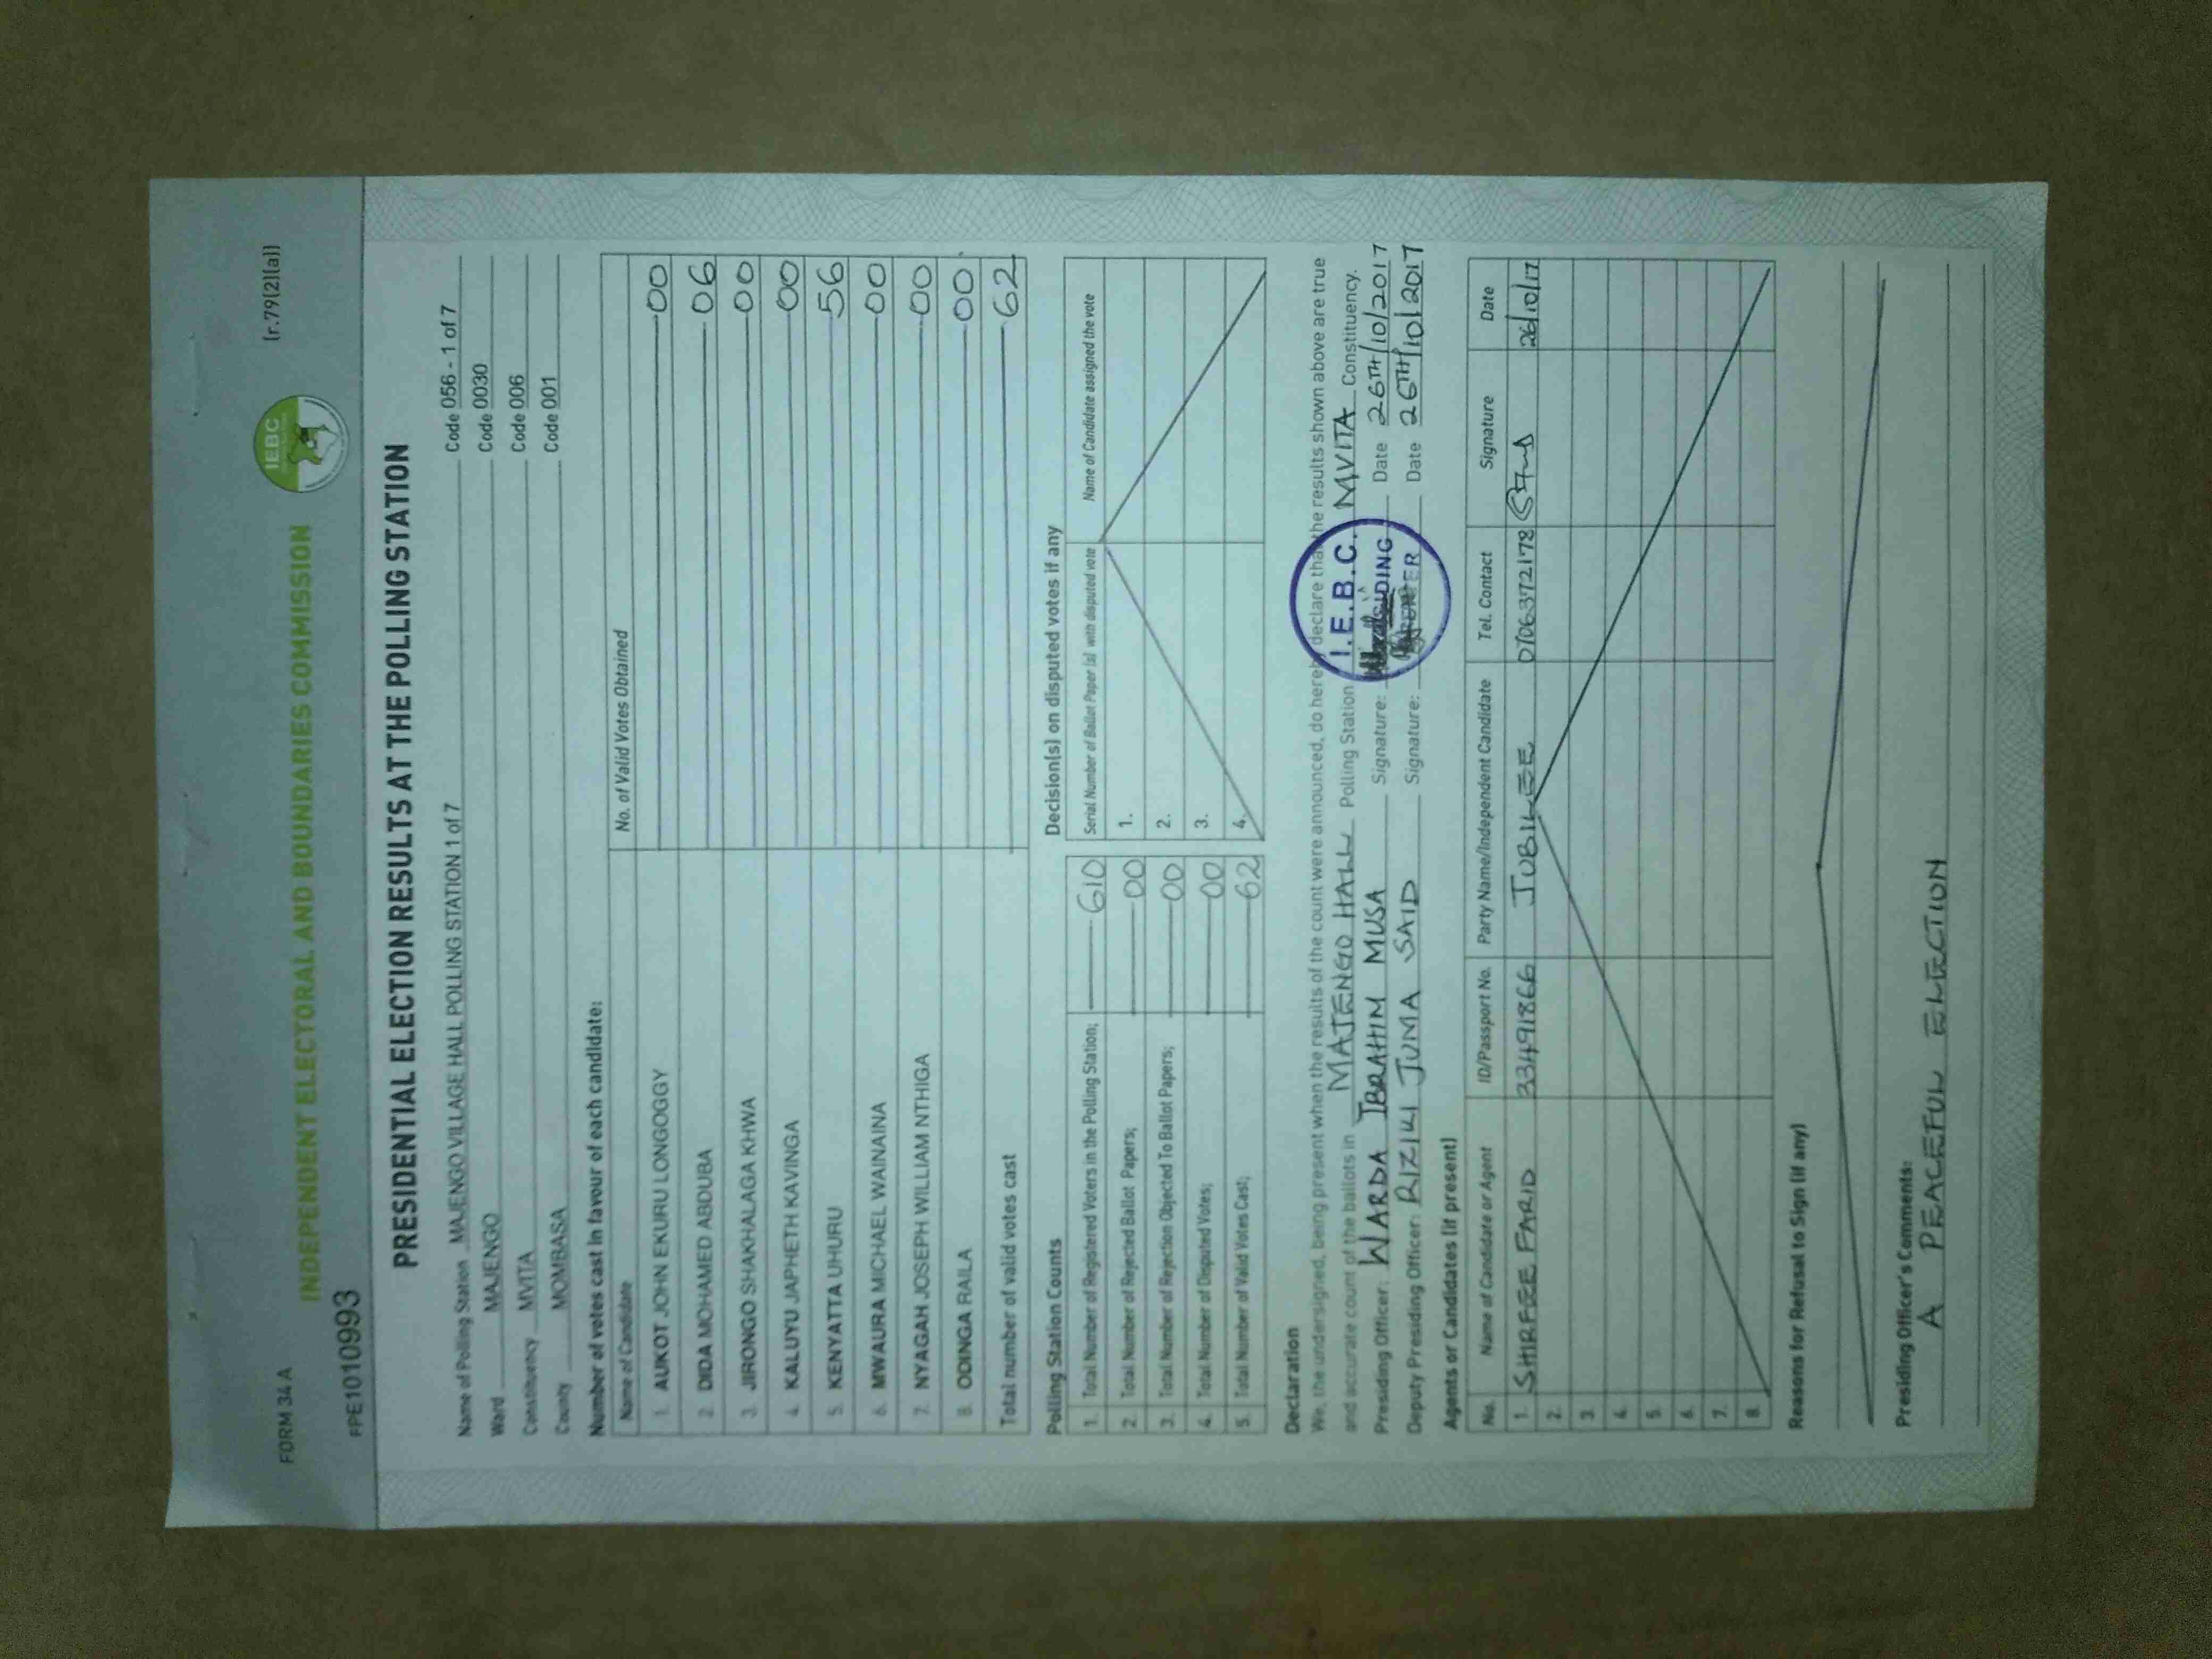 FORM 34 A
[r.79(2)(a)]
IEBC
INDEPENDENT ELECTORAL AND BOUNDARIES COMMISSION
FPE1010993
PRESIDENTIAL ELECTION RESULTS AT THE POLLING STATION
Name of Polling Station MAJENGO VILLAGE HALL POLLING STATION 1 of 7 Code 056 - 1 of 7
Ward MAJENGO Code 0030
Constituency MVITA Code 006
County MOMBASA Code 001
Number of votes cast in favour of each candidate:
Name of Candidate No. of Valid Votes Obtained
1. AUKOT JOHN EKURU LONGOGGY 00
2. DIDA MOHAMED ABDUBA 06
3. JIRONGO SHAKHALAGA KHWA 00
4. KALUYU JAPHETH KAVINGA 00
5. KENYATTA UHURU 56
6. MWAURA MICHAEL WAINAINA 00
7. NYAGAH JOSEPH WILLIAM NTHIGA 00
8. ODINGA RAILA 00
Total number of valid votes cast 62
Polling Station Counts
1. Total Number of Registered Voters in the Polling Station; 610
2. Total Number of Rejected Ballot Papers; 00
3. Total Number of Rejection Objected To Ballot Papers; 00
4. Total Number of Disputed Votes; 00
5. Total Number of Valid Votes Cast; 62
Decision(s) on disputed votes if any
Serial Number of Ballot Paper (s) with disputed vote Name of Candidate assigned the vote
1.
2.
3.
4.
Declaration
We, the undersigned, being present when the results of the count were announced, do hereby declare that the results shown above are true
and accurate count of the ballots in MAJENGO HALL Polling Station MVITA Constituency.
Presiding Officer: WARDA IBRAHIM MUSA Signature: Date 26TH/10/2017
Deputy Presiding Officer: RIZIKI JUMA SAID Signature: Date 26TH/10/2017
I.E.B.C.
Agents or Candidates (if present)
No. Name of Candidate or Agent ID/Passport No. Party Name/Independent Candidate Tel. Contact Signature Date
1. SHIRFEE FARID 33491866 JUBILEE 0706372178 26/10/17
2.
3.
4.
5.
6.
7.
8.
Reasons for Refusal to Sign (if any)
Presiding Officer's Comments:
A PEACEFUL ELECTION